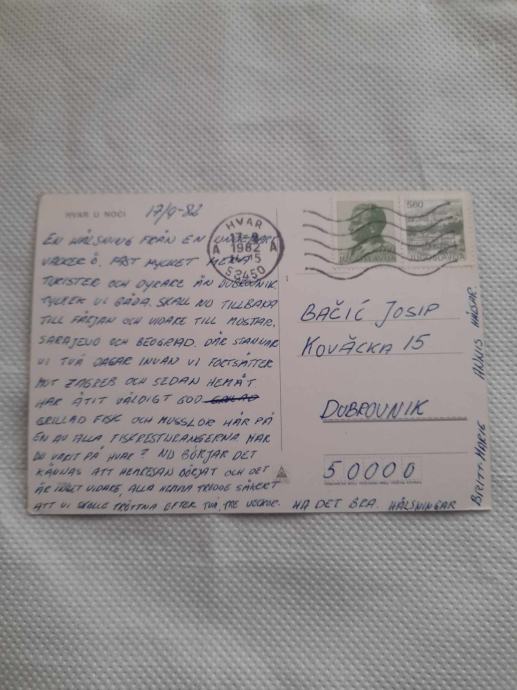 HVAR U NOĆI
17/9-82
EN HÄLSNING FRÅN EN UNDERBART
VACKER Ö. FAST MYCKET MERA
TURISTER OCH DYRARE ÄN DUBROVNIK
TYCKER VI BÅDA. SKALL NU TILLBAKA
TILL FÄRJAN OCH VIDARE TILL MOSTAR,
SARAJEVO OCH BEOGRAD. DÄR STANNAR
VI TVÅ DAGAR INNAN VI FORTSÄTTER
MOT ZAGREB OCH SEDAN HEMÅT
HAR ÄTIT VÄLDIGT GOD
GRILLAD FISK OCH MUSSLOR HÄR PÅ
EN AV ALLA FISKRESTURANGERNA HAR
DU VARIT PÅ HVAR? NU BÖRJAR DET
KÄNNAS ATT HEMRESAN BÖRJAT OCH DET
ÄR VIDARE, ALLA HEMMA TRODDE SÄKERT
ATT VI SKULLE TRÖTTNA EFTER TVÅ, TRE VECKOR. HA DET BRA. HÄLSNINGAR
BRITT-MARIE ANNIS HÄLSAR.
HVAR
1982
15
A A
58450
JUGOSLAVIJA
5.60
JUGOSLAVIJA
BAČIĆ JOSIP
KOVAČKA 15
DUBROVNIK
50000